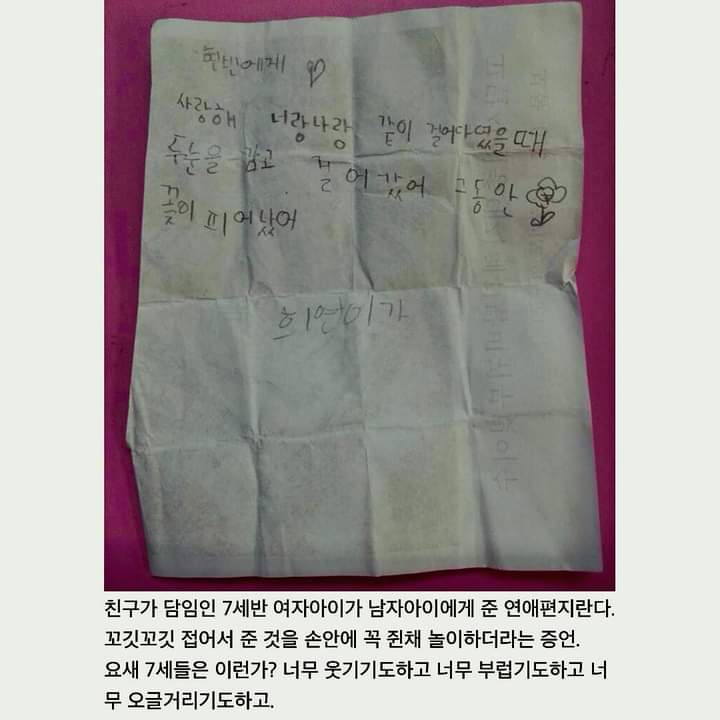 현빈에게
사랑해 너랑나랑 같이 걸어다녔을때
두눈을 감고 걸어갔어 그동안
꽃이 피어났어
희연이가
친구가 담임인 7세반 여자아이가 남자아이에게 준 연애편지란다.
꼬깃꼬깃 접어서 준 것을 손안에 꼭 쥔채 놀이하더라는 증언.
요새 7세들은 이런가? 너무 웃기기도하고 너무 부럽기도하고 너
무 오글거리기도하고.